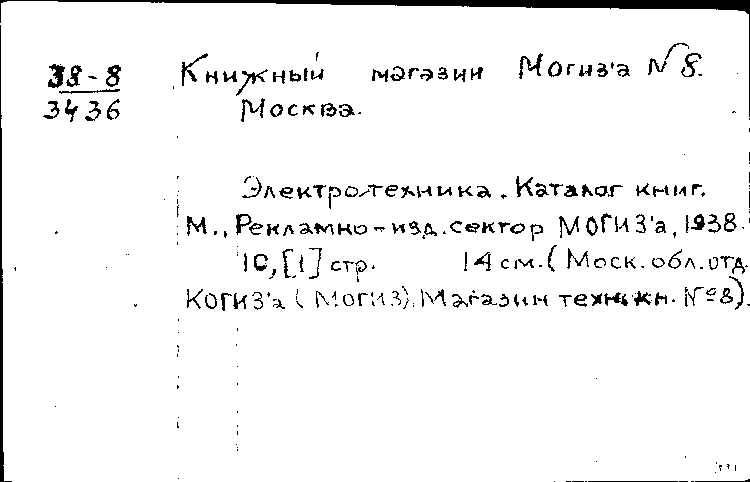 38-8 Книжный магазин Могиз'а № 8.
3436 Москва.
Электротехника. Каталог книг.
М., Рекламно-изд. сектор МОГИЗ'а, 1938.
10, [1] стр. 14 см. (Моск. обл. отд.
КОГИЗ'а (МОГИЗ). Магазин технкн. №8).